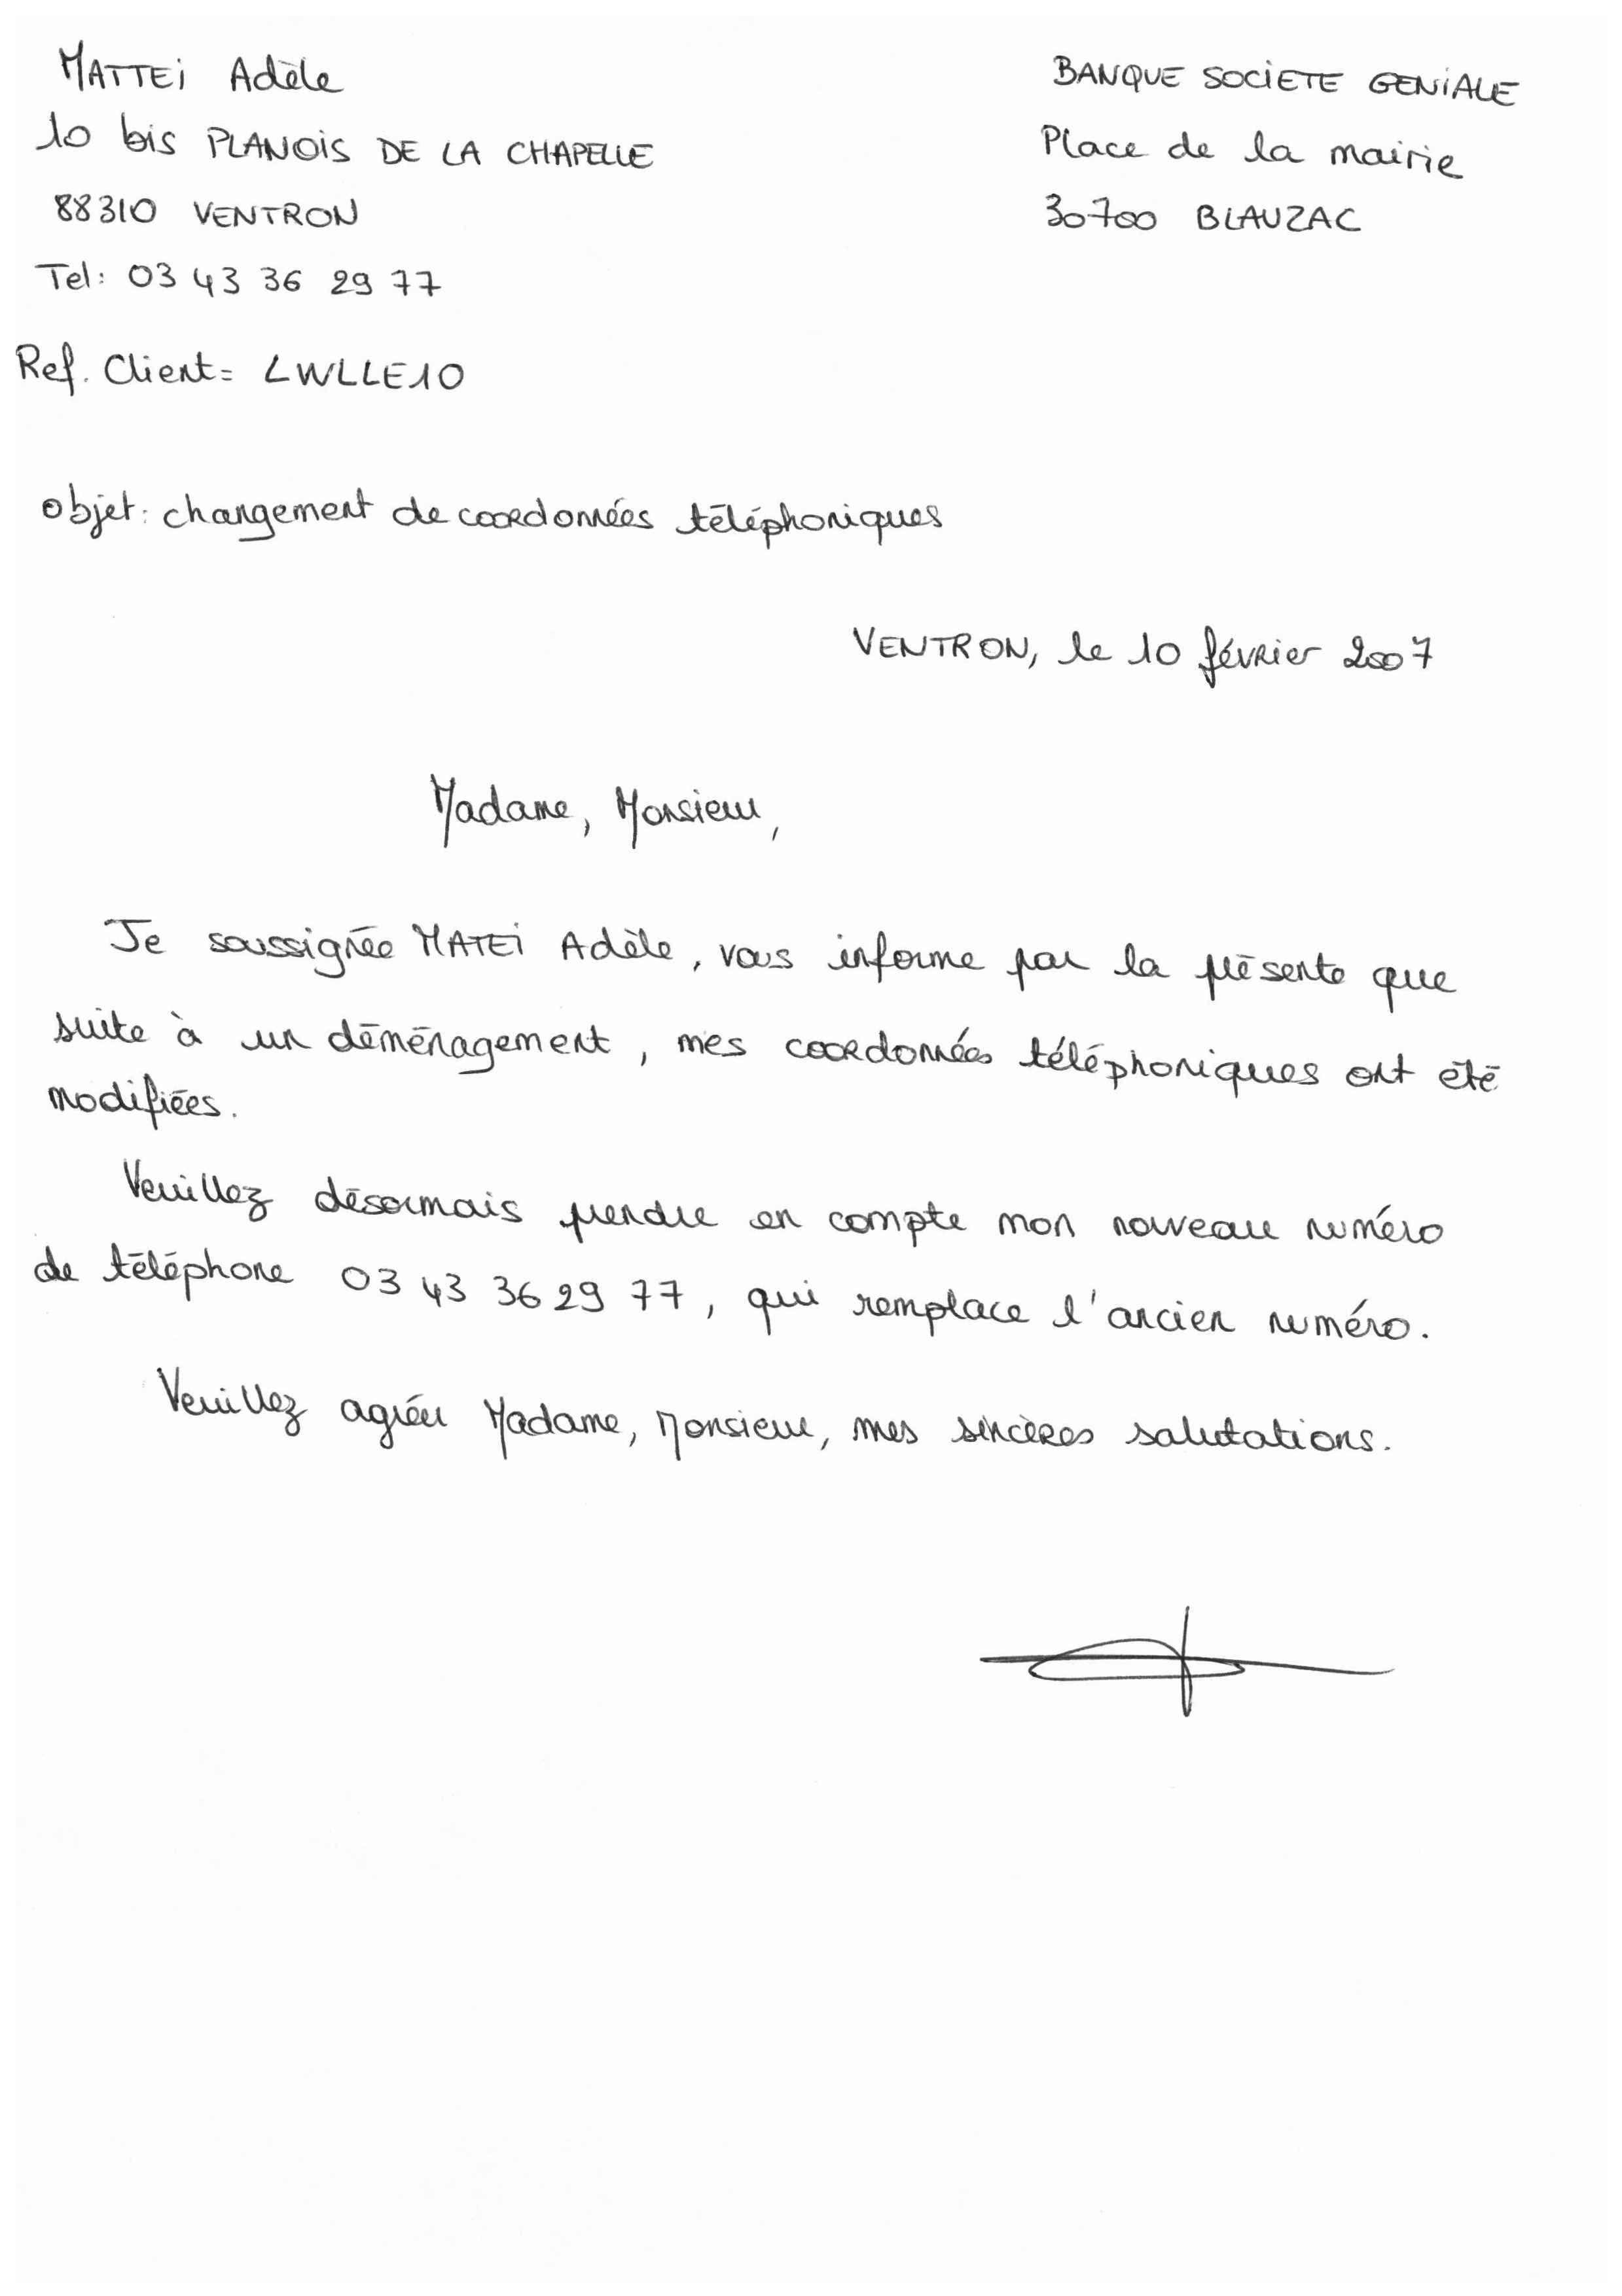 MATTEi Adèle
10 bis PLANOIS DE LA CHAPELLE
88310 VENTRON
Tel: 03 43 36 29 77
Ref. Client= LWLLE10
BANQUE SOCIETE GENIALE
Place de la mairie
30700 BLAUZAC
objet: changement de coordonnées téléphoniques
VENTRON, le 10 février 2007
Madame, Monsieur,
Je soussignée MATEi Adèle, vous informe par la présente que
suite à un déménagement, mes coordonnées téléphoniques ont été
modifiées.
Veuillez désormais prendre en compte mon nouveau numéro
de téléphone 03 43 36 29 77, qui remplace l'ancien numéro.
Veuillez agréer Madame, Monsieur, mes sincères salutations.